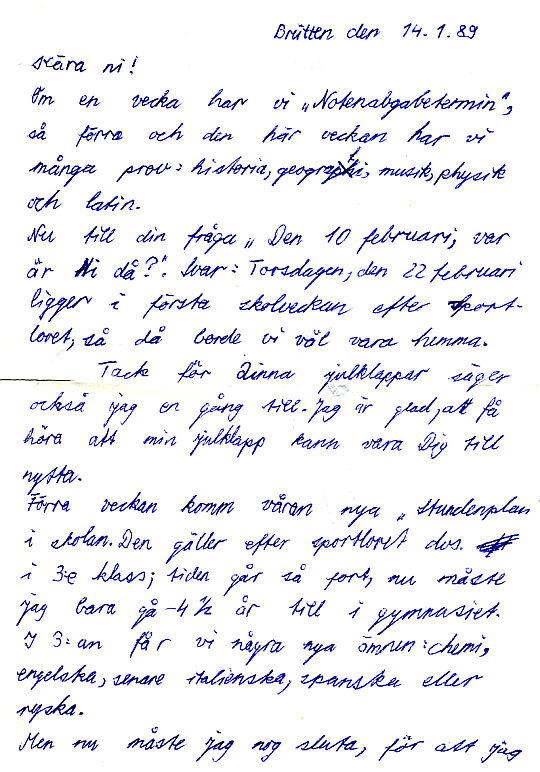 Brütten den 14.1.89
Kära ni!
Om en vecka har vi „Notenabgabetermin“,
så förra och den här veckan har vi
många prov: historia, geografi, musik, physik
och latin.
Nu till din fråga „Den 10 februari, var
är Ni då?“. Svar: Torsdagen, den 22 februari
ligger i första skolveckan efter sport-
lovet, så då borde vi väl vara hemma.
Tack för Dinna julklappar säger
också jag en gång till. Jag är glad, att få
höra att min julklapp kann vara Dig till
nytta.
Förra veckan komm våran nya „Stundenplan
i skolan. Den gäller efter sportlovet dvs.
i 3:e klass; tiden går så fort, nu måste
jag bara gå -4 1/2 år till i gymnasiet.
I 3:an får vi några nya ämnen: chemi,
engelska, senare italienska, spanska eller
ryska.
Men nu måste jag nog sluta, för att jag